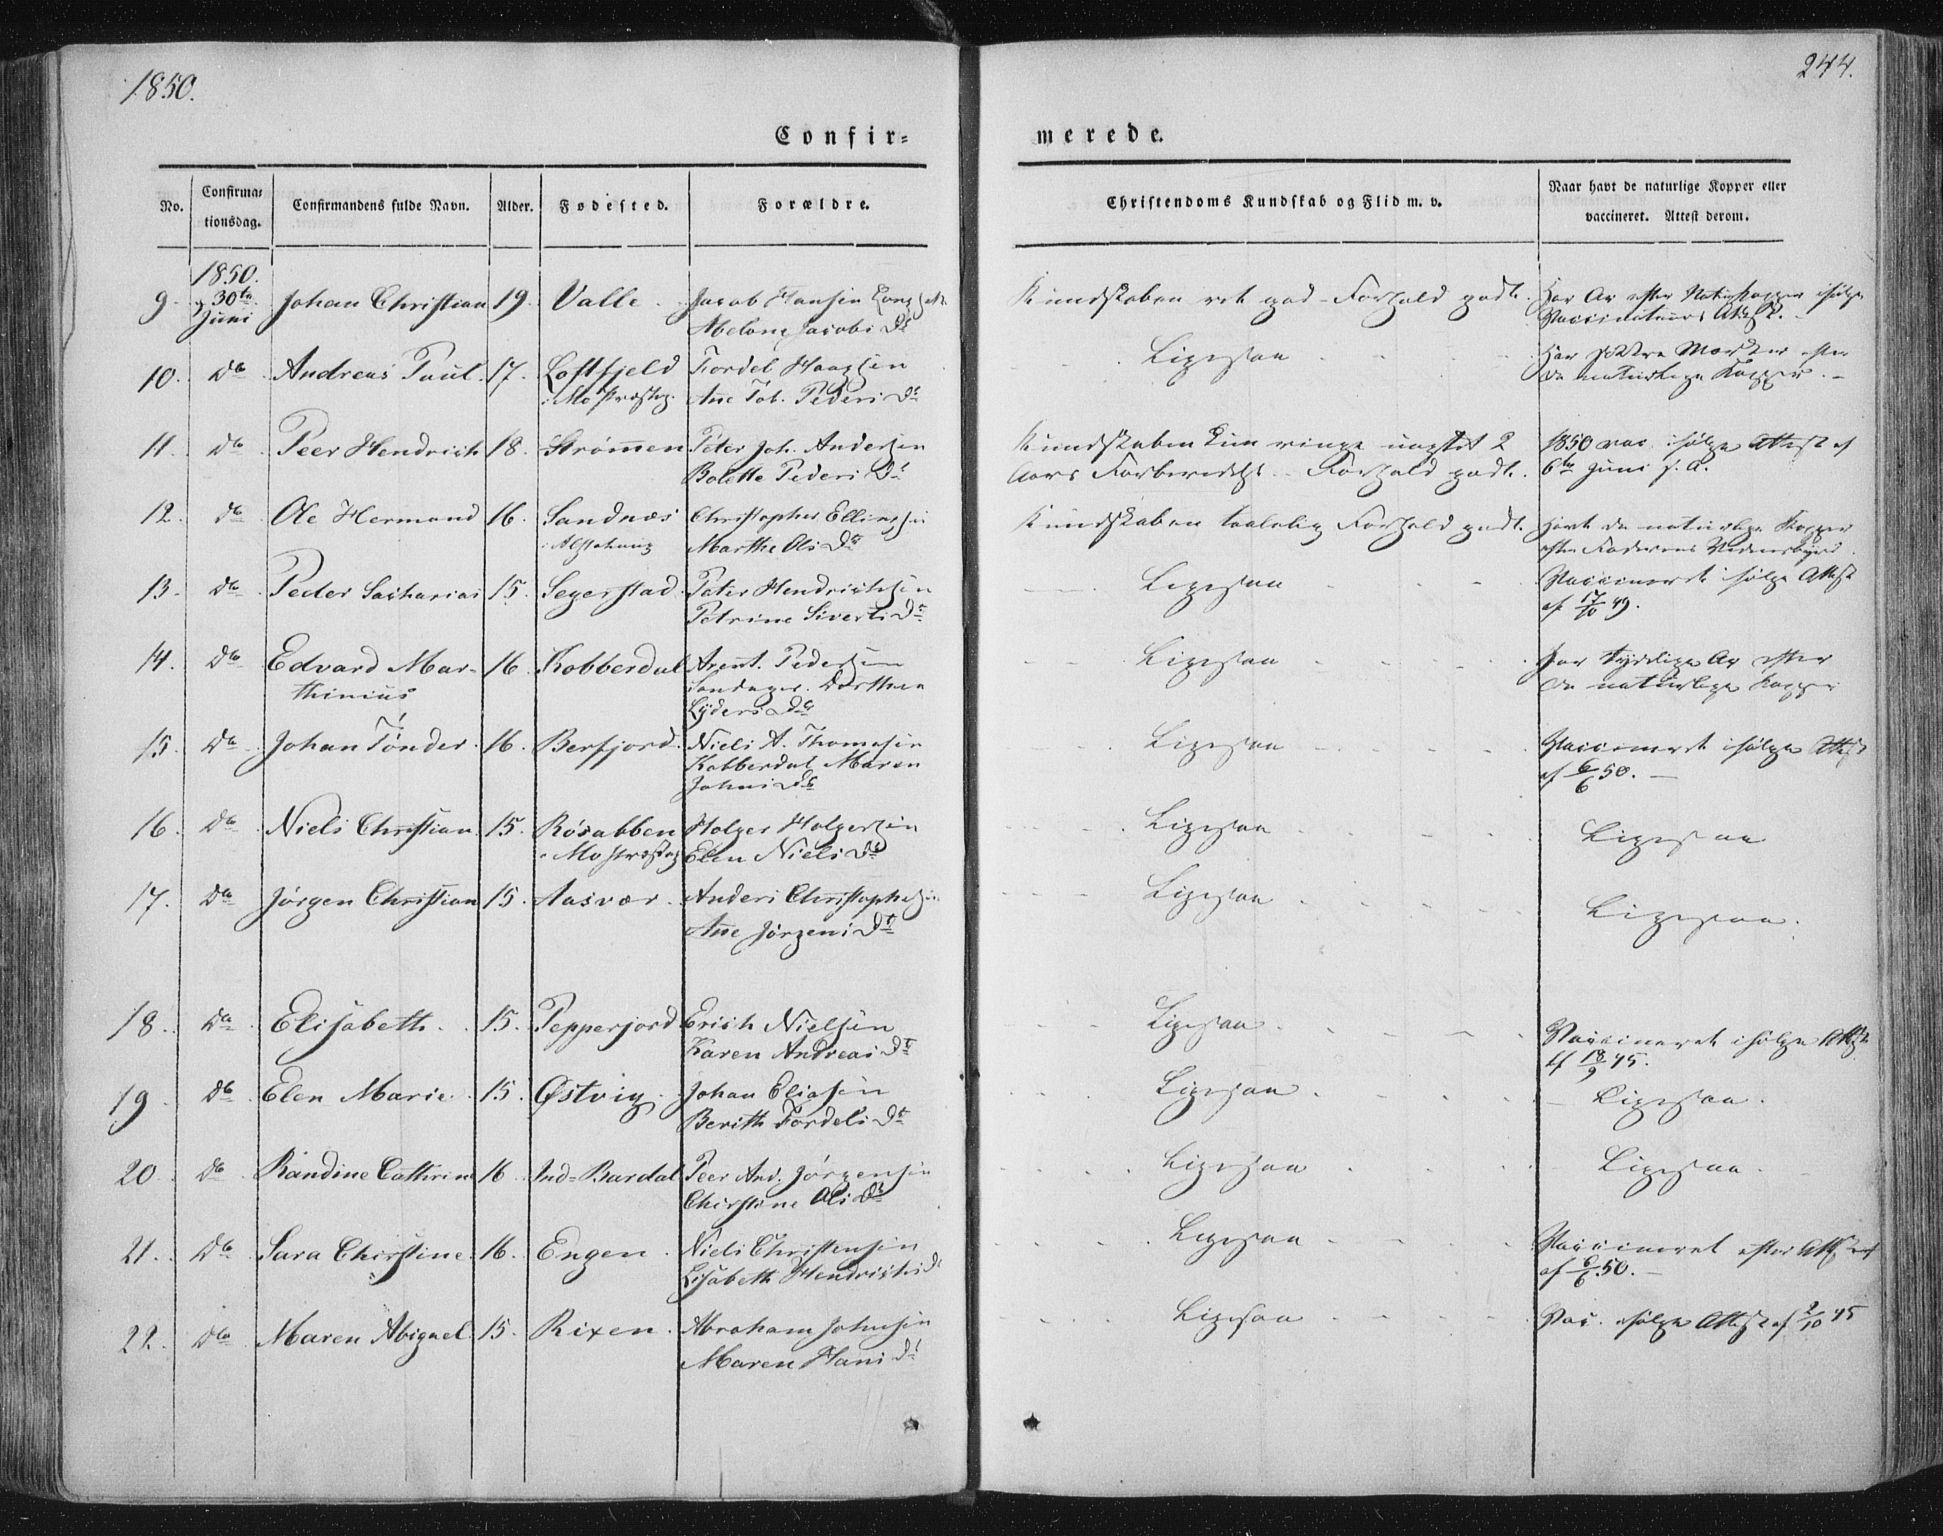 1850.
244.
Confir=
merede.
No.
Confirma=
tionsdag.
Confirmandens fulde Navn.
Alder.
Fødested.
Forældre.
Christendoms Kundskab og Flid m. v.
Naar havt de naturlige Kopper eller
vaccineret. Attest derom.
1850.
9. 30te Johan Christian 19. Valle. Jacob Hansen
Juni Jacobs Dr
Kundskaben ret god – Forhold godt. Har Ar efter
Attest.
10. Do Andreas Paul. 17. Loftfjeld Tordel Haagsen
i Mo Præstg. Ane Tob. Peders Dr
Ligesaa Har Mærker efter
de naturlige Kopper. –
11. Do Peer Hendrich 18. Strømen Peter Joh. Andersen
Bolette Peders Dr
Kundskaben kun ringe uagtet 2 1850 vac. ifølge Attest af
Aars Forberedelse. Forhold godt. 6te Juni s. A.
12. Do Ole Hermand 16. Sandnæs Christopher Ellingsen
i Alstahoug Marthe Ols Dr
Kundskaben taalelig Forhold godt. Havt de naturlige Kopper
efter Faderens Vidnesbyrd.
13. Do Peder Sacharias 15. Segerstad Peter Hendrichsen
Petrine Siverts Dr
Ligesaa Vaccineret ifølge Attest
af 17/10 49.
14. Do Edvard Mar- 16. Kobberdal Arent Pedersen
thinius Dorthea
Lyders Dr
Ligesaa Har tydelige Ar efter
de naturlige Kopper
15. Do Johan Tønder 16. Berfjord. Niels A. Thomasen
Kobberdal Maren
Johns Dr
Ligesaa Vaccineret ifølge Attest
af 6/6 50. –
16. Do Niels Christian 15. Røsabben Holger Holgersen
i Mo Præsteg Elen Niels Dr
Ligesaa Ligesaa
17. Do Jørgen Christian 15. Aasvær. Anders Christophersen
Ane Jørgens Dr
Ligesaa Ligesaa.
18. Do Elisabeth. 15. Pepperjord Erich Nielsen
Karen Andreas Dr
Ligesaa Vaccineret ifølge Attest
af 18/9 45.
19. Do Elen Marie. 15. Østvig. Johan Eliasen
Berith Tordels Dr
Ligesaa Ligesaa.
20. Do Randine Cathrine 16 Ind=Bardal Peer And. Jørgensen
Christine Ols Dr
Ligesaa Ligesaa.
21. Do Sara Christine. 16. Engen. Niels Christensen
Lisabeth Hendrichs Dr
Ligesaa Vaccineret efter Attest
af 6/6 50. –
22. Do Maren Abigael 15. Rixen. Abraham Johnsen
Maren Hans Dr
Ligesaa Vac. ifølge Attest af 2/10 45